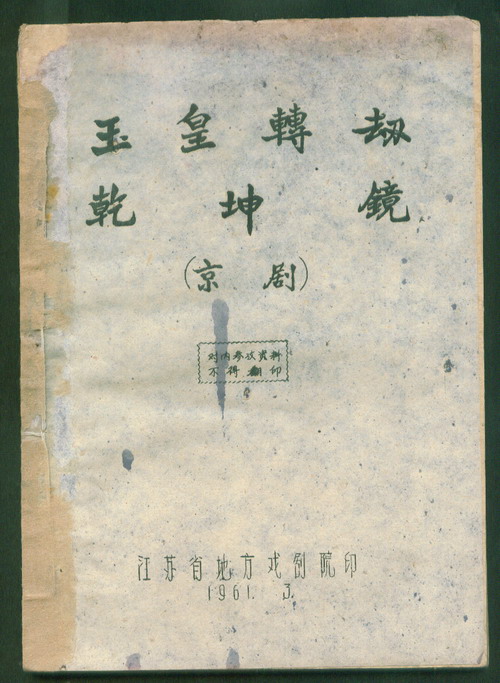 玉皇轉劫
乾坤鏡
(京剧)
对内参攷資料
不得翻印
江苏省地方戏剧院印
1961. 3.